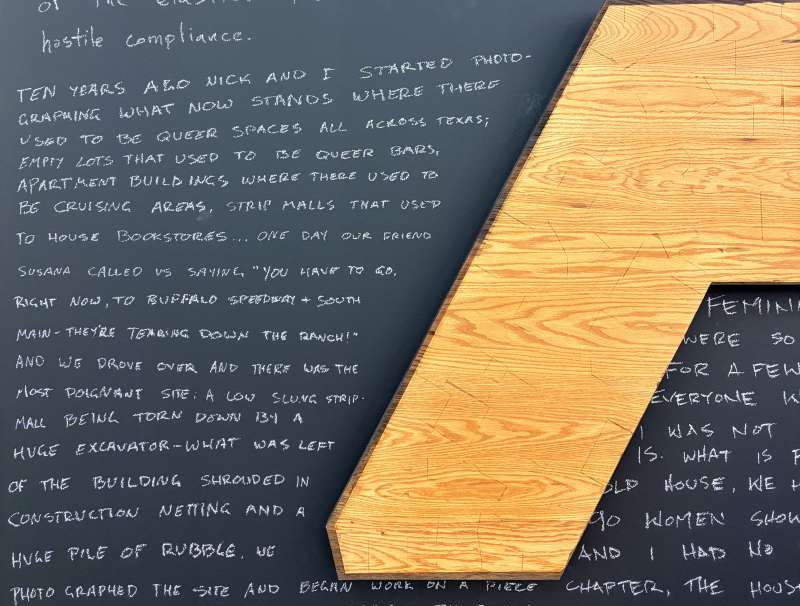 of the
hostile compliance.
TEN YEARS AGO NICK AND I STARTED PHOTO-
GRAPHING WHAT NOW STANDS WHERE THERE
USED TO BE QUEER SPACES ALL ACROSS TEXAS;
EMPTY LOTS THAT USED TO BE QUEER BARS,
APARTMENT BUILDINGS WHERE THERE USED TO
BE CRUISING AREAS, STRIP MALLS THAT USED
TO HOUSE BOOKSTORES... ONE DAY OUR FRIEND
SUSANA CALLED US SAYING, "YOU HAVE TO GO,
RIGHT NOW, TO BUFFALO SPEEDWAY + SOUTH
MAIN - THEY'RE TEARING DOWN THE RANCH!"
AND WE DROVE OVER AND THERE WAS THE
MOST POIGNANT SITE: A LOW SLUNG STRIP-
MALL BEING TORN DOWN BY A
HUGE EXCAVATOR - WHAT WAS LEFT
OF THE BUILDING SHROUDED IN
CONSTRUCTION NETTING AND A
HUGE PILE OF RUBBLE. WE
PHOTOGRAPHED THE SITE AND BEGAN WORK ON A PIECE
FEMINI
WERE SO
FOR A FEW
EVERYONE
I WAS NOT
IS. WHAT IS
OLD HOUSE, WE
90 WOMEN SHOW
AND I HAD NO
CHAPTER, THE HOUS